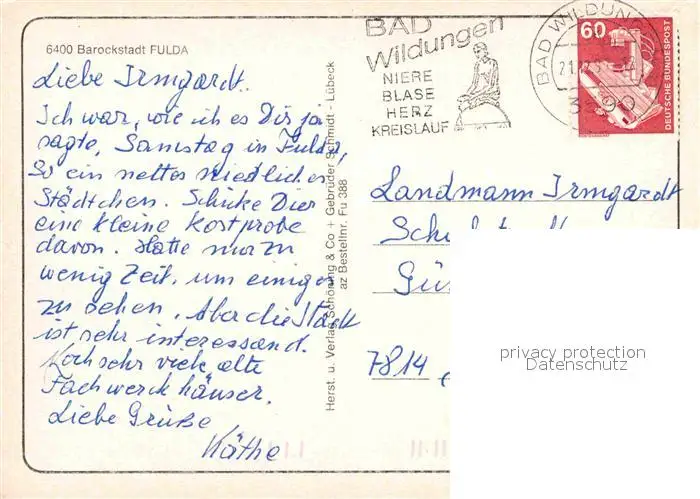 6400 Barockstadt FULDA
Liebe Irmgardt.
Ich war, wie ich es Dir ja
sagte, Samstag in Fulda,
So ein nettes niedliches
Städtchen. Schicke Dier
eine kleine Kostprobe
davon. Hatte nur zu
wenig Zeit, um einiges
zu sehen. Aber die Stadt
ist sehr interessand.
Noch sehr viele alte
Fachwerckhäuser.
Liebe Grüße
Käthe
Herst. u. Verlag Schöning & Co + Gebrüder Schmidt - Lübeck
az Bestellnr. Fu 388
BAD
Wildungen
NIERE
BLASE
HERZ
KREISLAUF
BAD WILDUNGEN
60
DEUTSCHE BUNDESPOST
Landmann Irmgardt
7814
privacy protection
Datenschutz